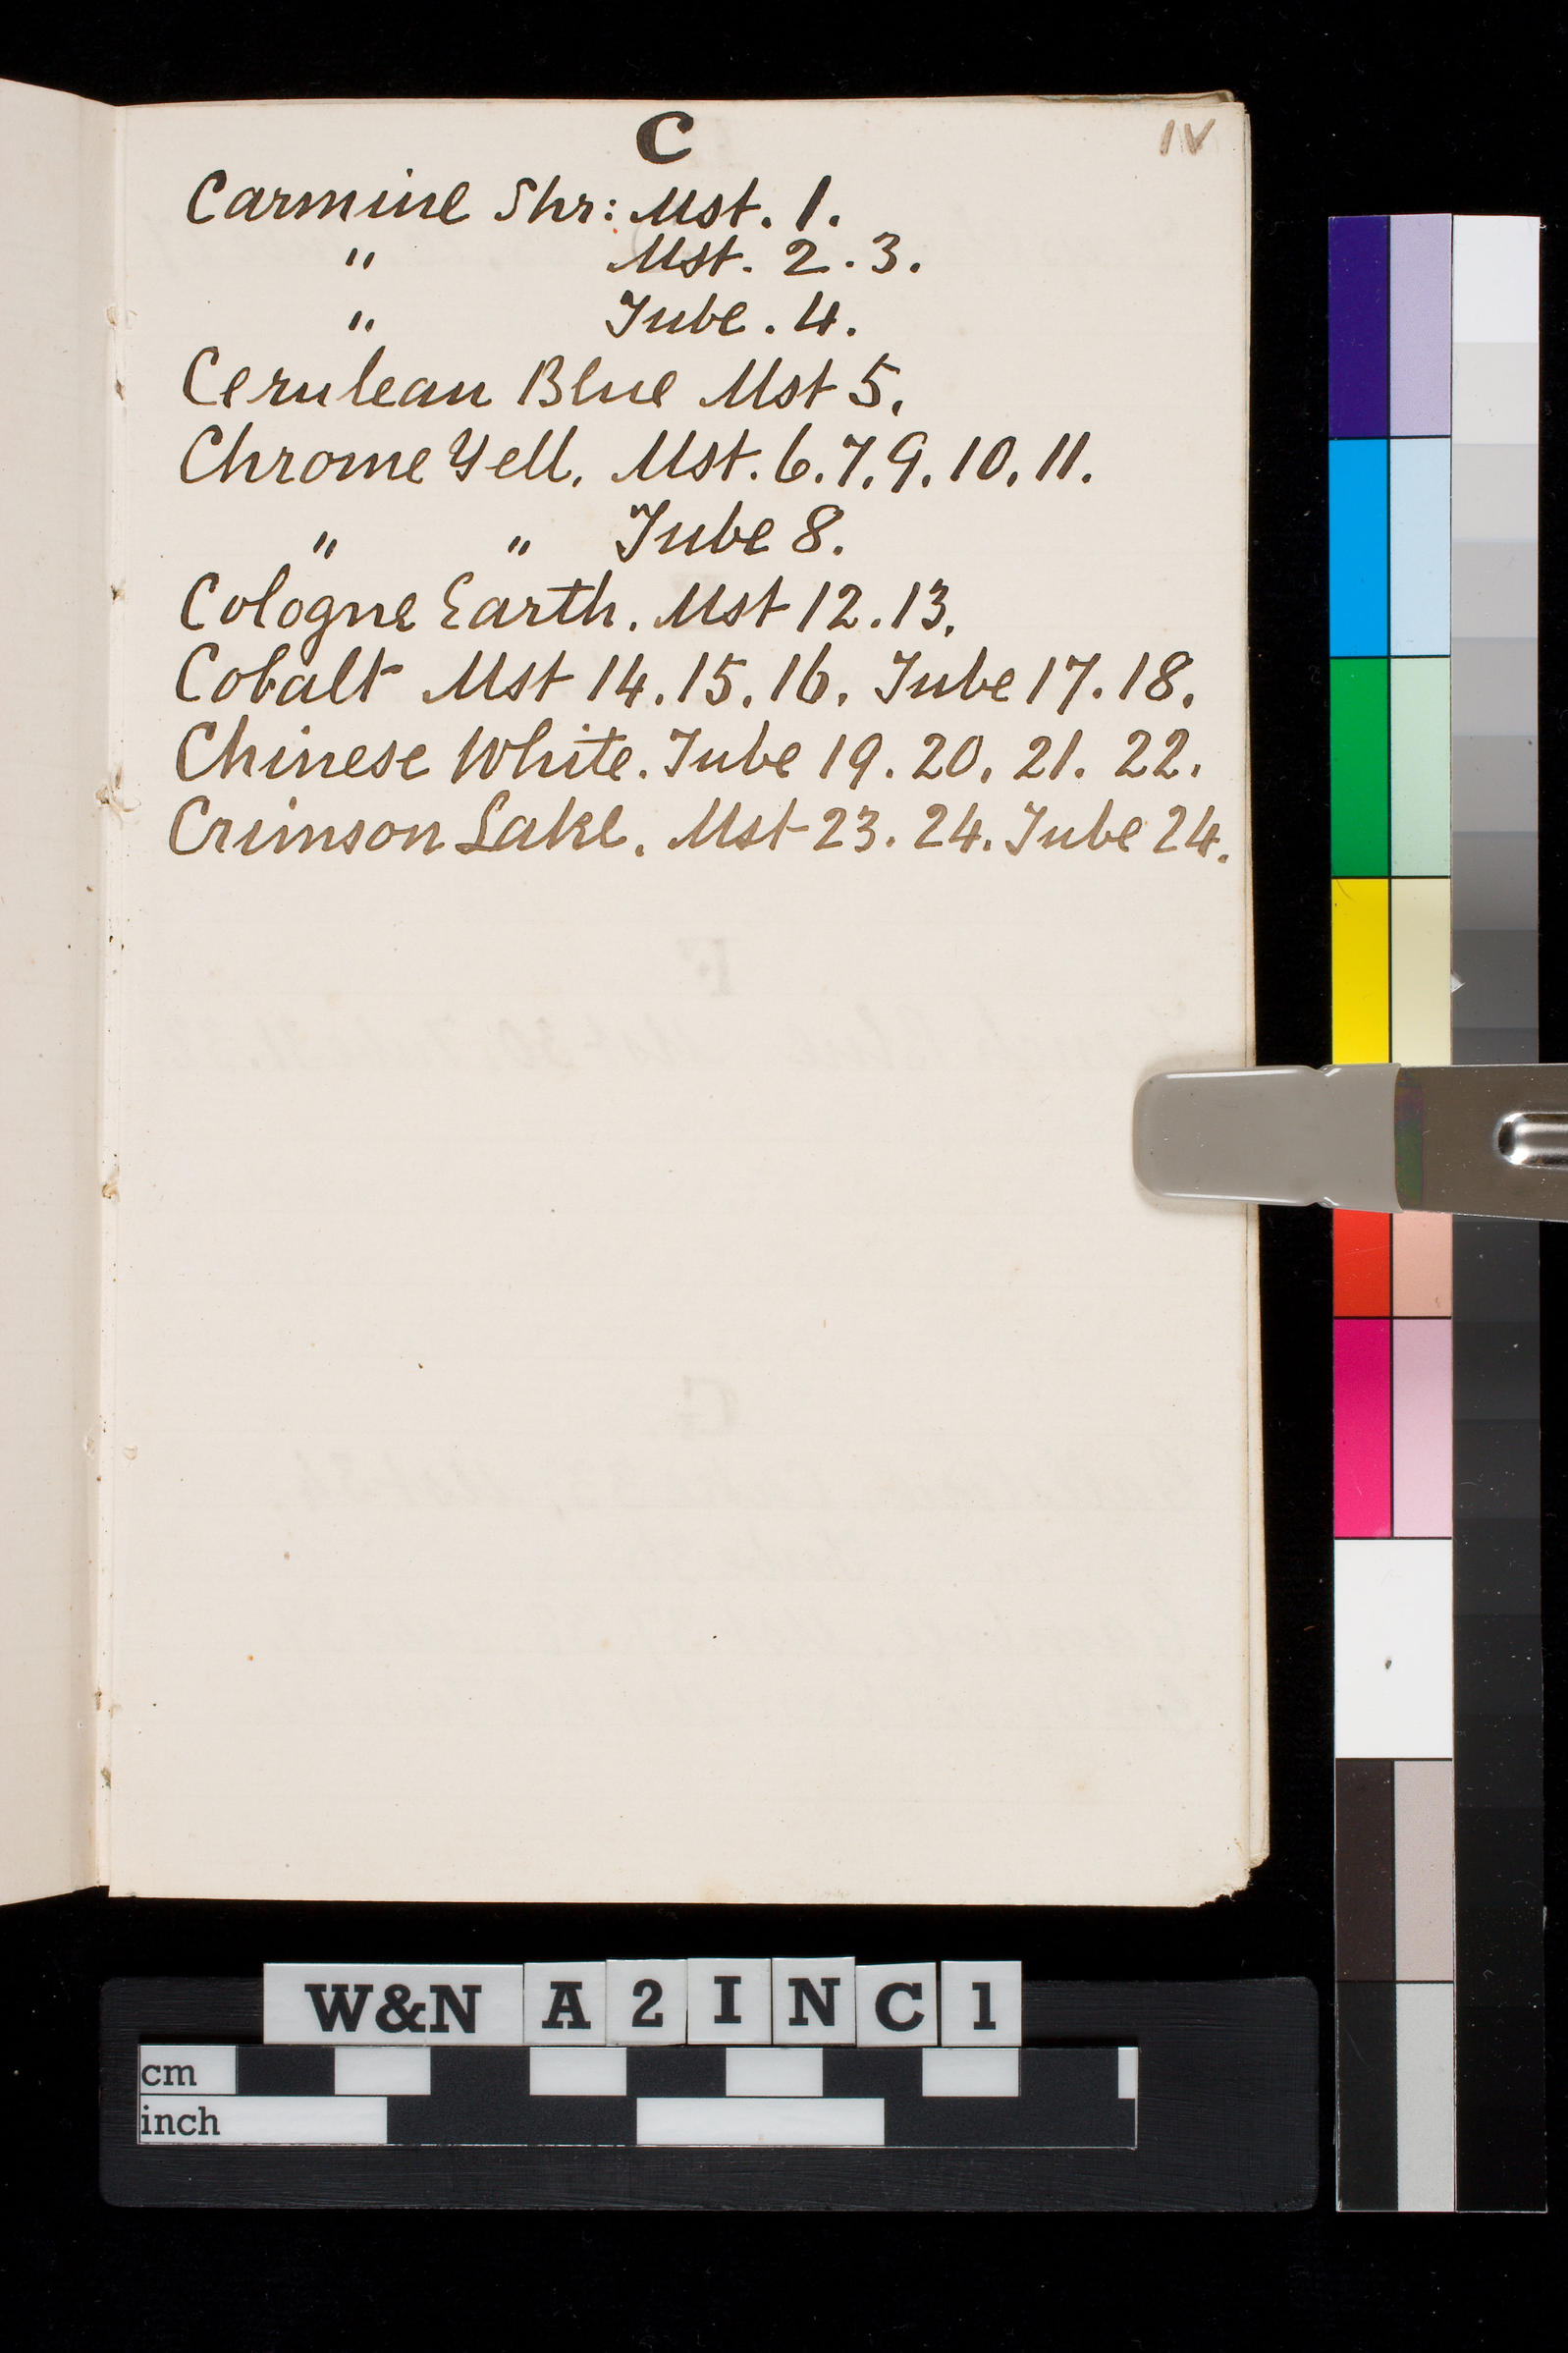 C
IV
Carmine Shr: Mst. 1.
" Mst. 2. 3.
" Tube. 4.
Cerulean Blue Mst 5.
Chrome Yell. Mst. 6. 7. 9. 10. 11.
" " Tube 8.
Cologne Earth. Mst 12. 13.
Cobalt Mst 14. 15. 16. Tube 17. 18.
Chinese White. Tube 19. 20. 21. 22.
Crimson Lake. Mst 23. 24. Tube 24.
W&N A2INC1
cm
inch